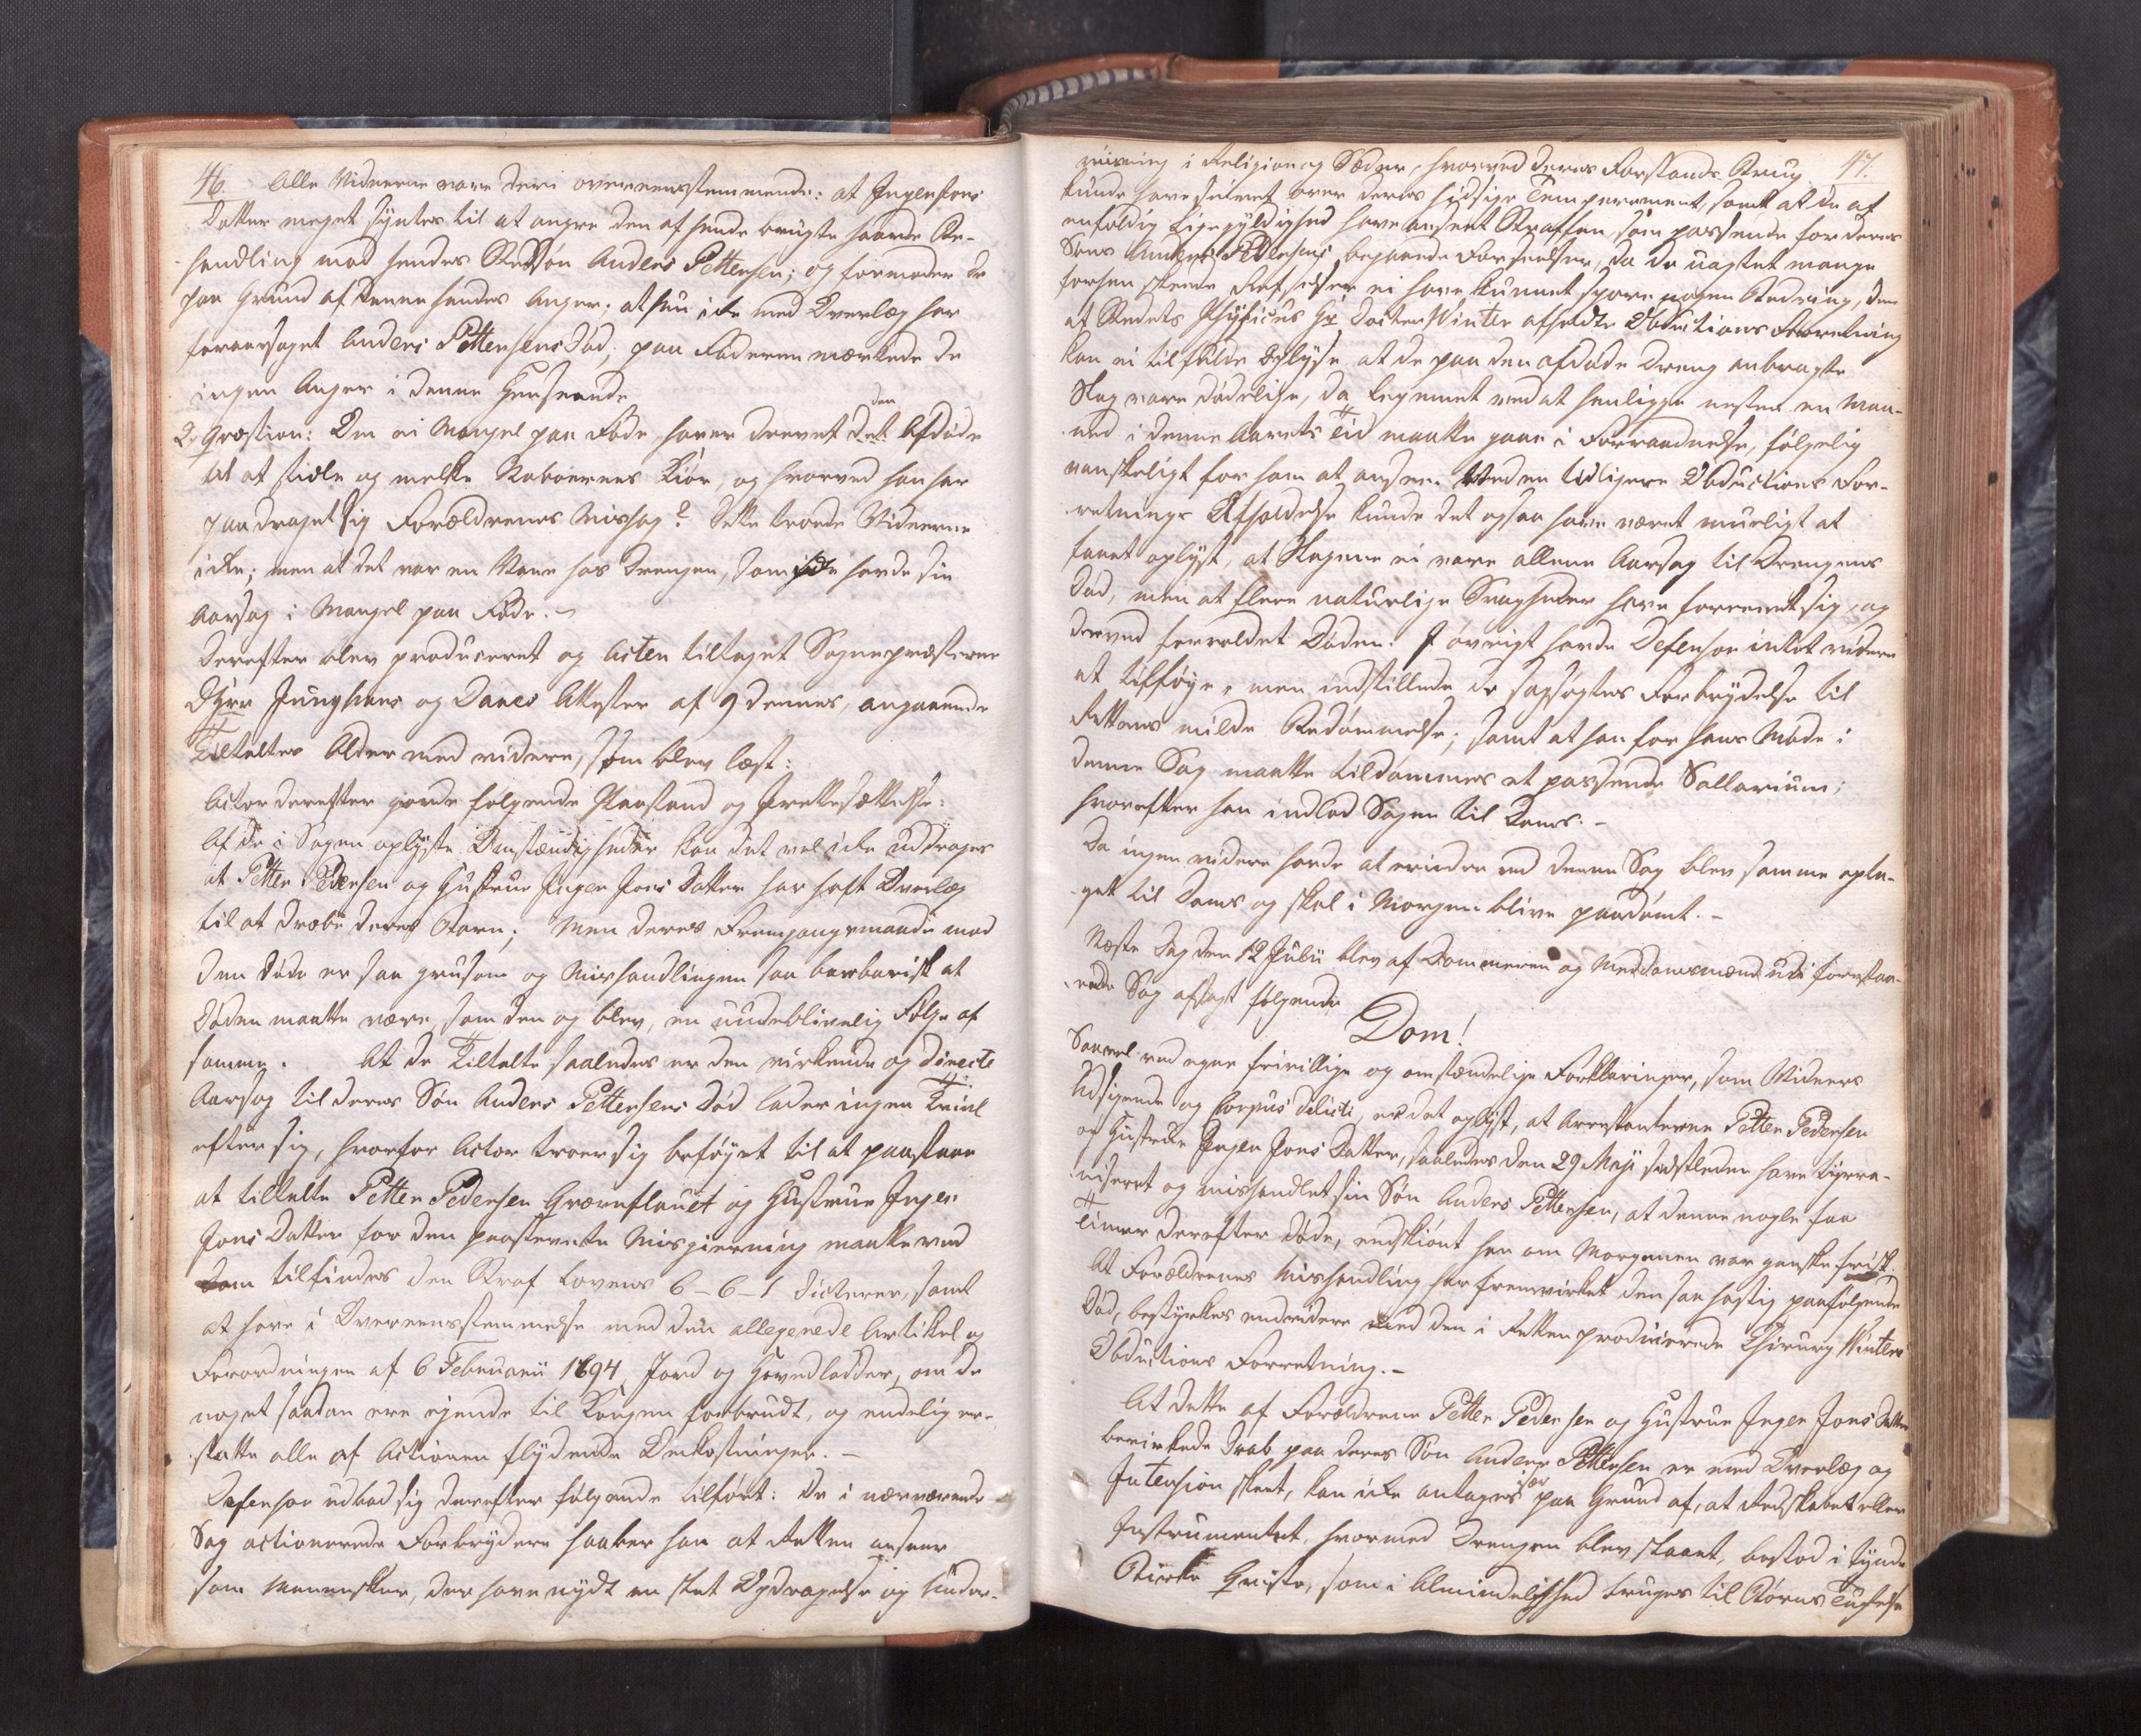 46. Alle Vidnerne vare deri overeensstemmende: at Ingen Jons
Datter meget syntes til at angre den af hende brugte haarde Be-
handling mod hendes Stedsøn Anders Pettersen; og formoder de
paa Grund af denne hendes Anger, at hun icke med Overlæg har
foraarsaget Anders Pettersens Død; paa Faderen mærkede de
ingen Anger i denne Henseende
2. Qvæstion: Om ei Mangel paa Føde haver drevet det den Afdøde
til at stiæle og melke Naboernes Kiør, og hvorved han har
paadraget sig Forældrenes Mishag? Dette troede Vidnerne
icke; men at det var en Vane hos Drengen, som icke havde sin
Aarsag i Mangel paa Føde. –
Derefter blev produceret og Acten tillaget Sognepræsterne
Dhrr Junghans og Danes Attester af 9 dennes, angaaende
Tiltaltes Alder med videre, som blev læst:
Actor derefter gjorde følgende Paastand og Irettesættelse:
Af de i Sagen oplyste Omstændigheder kan det vel icke uddrages
at Petter Pedersen og Hustrue Ingen Jons Datter har haft Overlæg
til at dræbe deres Barn; Men deres Fremgangsmaade mod
den døde er saa grusom og Mishandlingen saa barbarisk at
Døden maatte være, som den og blev, en uudeblivelig Følge af
samme. At de Tiltalte saaledes er den virkende og directe
Aarsag til deres Søn Anders Pettersens Død lader ingen Tvivl
efter sig, hvorfor Actor troer sig beføyet til at paastaae
at tiltalte Petter Pedersen Grævnflauet og Hustrue Ingen
Jons Datter for den paastevnte Misgierning maatte ved
Dom tilfindes den Straf Lovens 6–6–1 dicterer, samt
at have i Overeensstemmelse med den allegerede Artikel og
Forordningen af 6 Februarii 1694, Jord og Hovedlodder, om de
noget saadan ere eyende til Kongen forbrudt, og endelig er-
statte alle af Actionen flydende Omkostninger. –
Defensor udbad sig derefter følgende tilført: De i nærværende
Sag actionerede Forbrydere haaber han at Retten anseer
som Mennesker, der have nydt en slet Opdragelse og Under-
47.
viisning i Religion og Sæder, hvorved deres Forstands Brug
kunde have seiret over deres hidsige Temperament, samt at de af
enfoldig Ligegyldighed have anseet Straffen som passende for deres
Søns Anders Pedersens begaaede Forseelser, da de uagtet mange
forhen skeede Refselser ei have kunnet spore nogen Bedring, den
af Stedets Physicus Hr Docter Winter afholdte Obductions Forretning
kan ei tilfulde oplyse at de paa den afdøde Dreng anbragte
Slag vare dødelige, da Legemet ved at henligge nesten en Maa-
ned i denne Aarets Tid maatte gaae i Forraadnelse, følgelig
vanskeligt for ham at ansee. Ved en tidligere Obductions For-
retnings Afholdelse kunde det ogsaa have været mueligt at
faaet oplyst, at Slagene ei vare allene Aarsag til Drengens
Død, men at flere naturlige Svagheder have foreenet sig, og
derved forvoldet Døden. I øvrigt havde Defensor intet videre
at tilføye, men indstillede de sagsøgtes Forbrydelse til
Rettens milde Bedømmelse; samt at han for hans Møde i
denne Sag maatte tildømmes et passende Sallarium;
hvorefter han indlod Sagen til Doms. –
Da ingen videre havde at erindre ved denne Sag blev samme opta-
get til Doms og skal i Morgen blive paadømt. –
Næste Dag den 12 Julii blev af Dommeren og Meddomsmænd udi forestaa-
ende Sag afsagt følgende
Dom!
Saavel ved egne frivillige og omstændelige Forklaringer, som Vidners
Udsigende og Corpus delicti, er det oplyst, at Arrestanterne Petter Pedersen
og Hustrue Ingen Jons Datter, saaledes den 29 Maji sidstleden have tyrra-
niseret og mishandlet sin Søn Anders Pettersen, at denne nogle faa
Timer derefter døde, endskiønt han om Morgenen var ganske frisk.
At Forældrenes Mishandling har fremvirket den saa hastig paafølgende
Død, bestyrkes endvidere med den i Retten producerede Chirurg Winters
Obductions Forretning. –
At dette af Forældrene Petter Pedersen og Hustrue Ingen Jons Datter
bevirkede Drab paa deres Søn Anders Pettersen er med Overlæg og
Intension skeet, kan icke antages især paa Grund af, at Redskabet eller
Instrumentet, hvormed Drengen blev slaaet, bestod i tynde
Birke Qviste, som i Almindelighed bruges til Børns Tugtelse